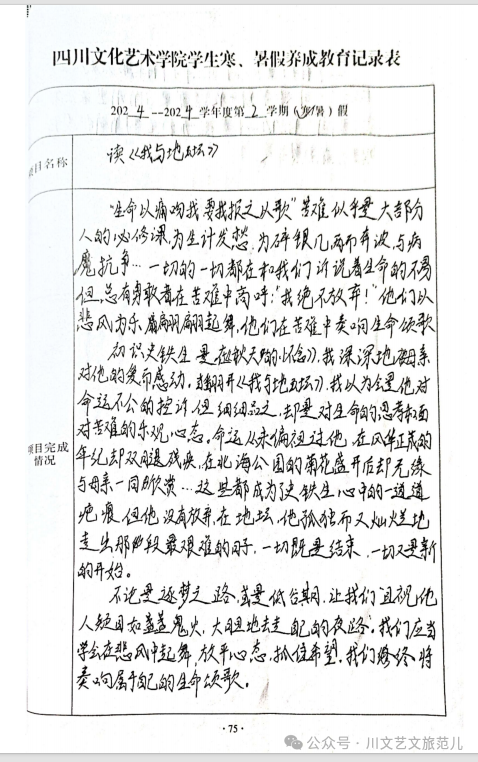 四川文化艺术学院学生寒、暑假养成教育记录表
2024--2024学年度第2学期(寒/暑)假
项目名称
读《我与地坛》
"生命以痛吻我,要我报之以歌"苦难似乎是大部份
人的必修课,为生计发愁,为碎银几两而奔波,与病
魔抗争…一切的一切都在和我们诉说着生命的不易
但,总有勇敢者在苦难中高呼:"我绝不放弃!"他们以
悲风为乐,翩翩起舞,他们在苦难中奏响生命颂歌
初识史铁生是在《秋天的怀念》,我深深地被母亲
对他的爱而感动,翻开《我与地坛》,我以为会是他对
命运不公的控诉,但细细品之,却是对生命的思考和面
对苦难的乐观心态。命运从未偏袒过他,在风华正茂的
年纪却双腿残疾,在北海公园的菊花盛开后却无缘
与母亲一同欣赏…这些都成为了史铁生心中的一道道
疤痕,但他没有放弃,在地坛,他孤独而又灿烂地
走出那段最艰难的日子,一切既是结束,一切又是新
的开始。
不论是逐梦之路,或是低谷期间,让我们直视他
人锐目如盏盏鬼火,大胆地去走自己的夜路。我们应当
学会在悲风中起舞,放平心态,抓住希望,我们终将
奏响属于自己的生命颂歌。
项目完成
情况
·75·
公众号·川文艺文旅范儿